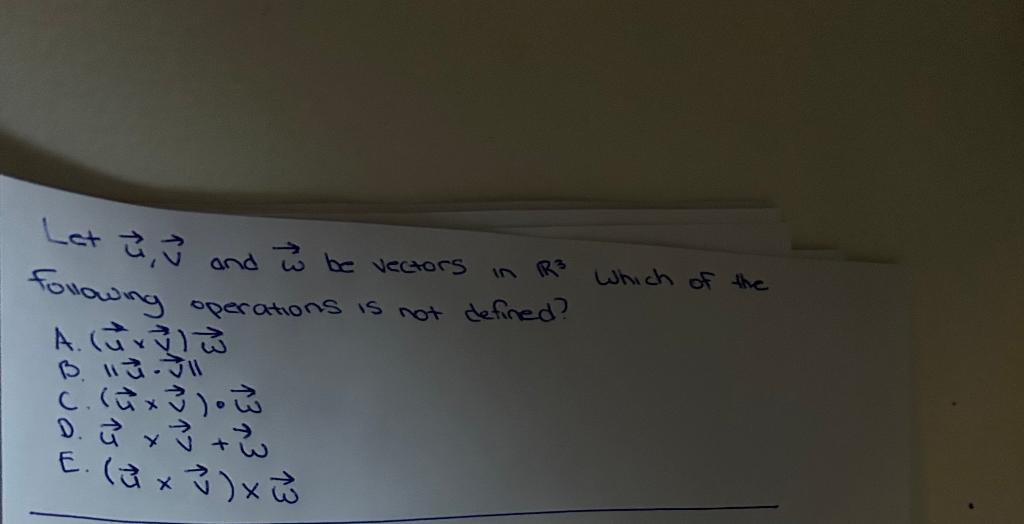 Let u⃗, v⃗ and w⃗ be vectors in ℝ³ Which of the
following operations is not defined?
A. (u⃗ × v⃗) w⃗
B. ||u⃗ · v⃗||
C. (u⃗ × v⃗) • w⃗
D. u⃗ × v⃗ + w⃗
E. (u⃗ × v⃗) × w⃗